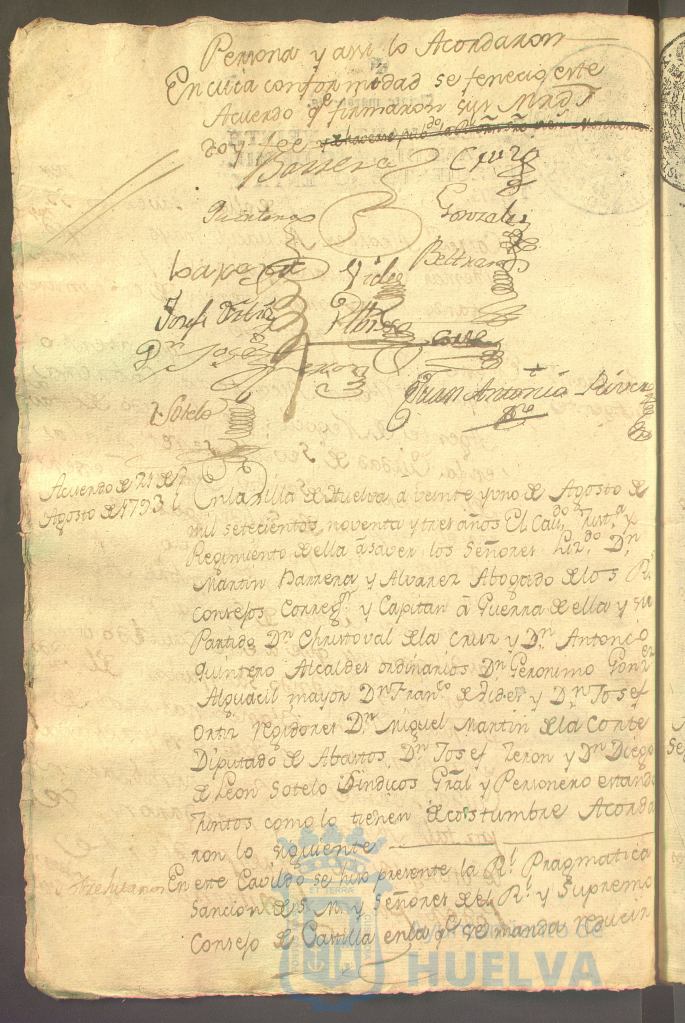 Persona y assi lo Acordaron
En cuia conformidad se fenecio este
Acuerdo qe. firmaron sus Mrds.
Doy fee
Barrera Cruz
Quintero Gonzalez
Beltran
Josef Ortiz
Dn. Josef Zeron
Juan Antonio River
Sotelo
Acuerdo de 21 de
Agosto de 1793
En la Villa de Huelva á veinte y uno de Agosto de
mil setecientos, noventa y tres años El Cavdo. Justa. y
Regimiento de ella á saver los Señores Lizdo. Dn.
Martin Barrera y Alvarez Abogado de los Rs.
Consejos Corregr. y Capitan á Guerra de ella y su
Partido Dn. Christoval de la Cruz y Dn. Antonio
Quintero Alcaldes ordinarios Dn. Geronimo Gonz
Alguacil mayor Dn. Franco. de Vides y Dn. Josef
Ortiz Regidores Dn. Miguel Martin de la Corte
Diputado de Abastos, Dn. Josef Zeron y Dn. Diego
de Leon Sotelo Sindicos Gral y Personero estando
Juntos como lo tienen de costumbre Acorda
ron lo siguiente
En este Cavildo se hizo presente la Rl. Pragmatica
Sancion de S. M. y Señores del Rl. y Supremo
Consejo de Castilla en la qe. se manda reducir
Ayuntamiento de
HUELVA